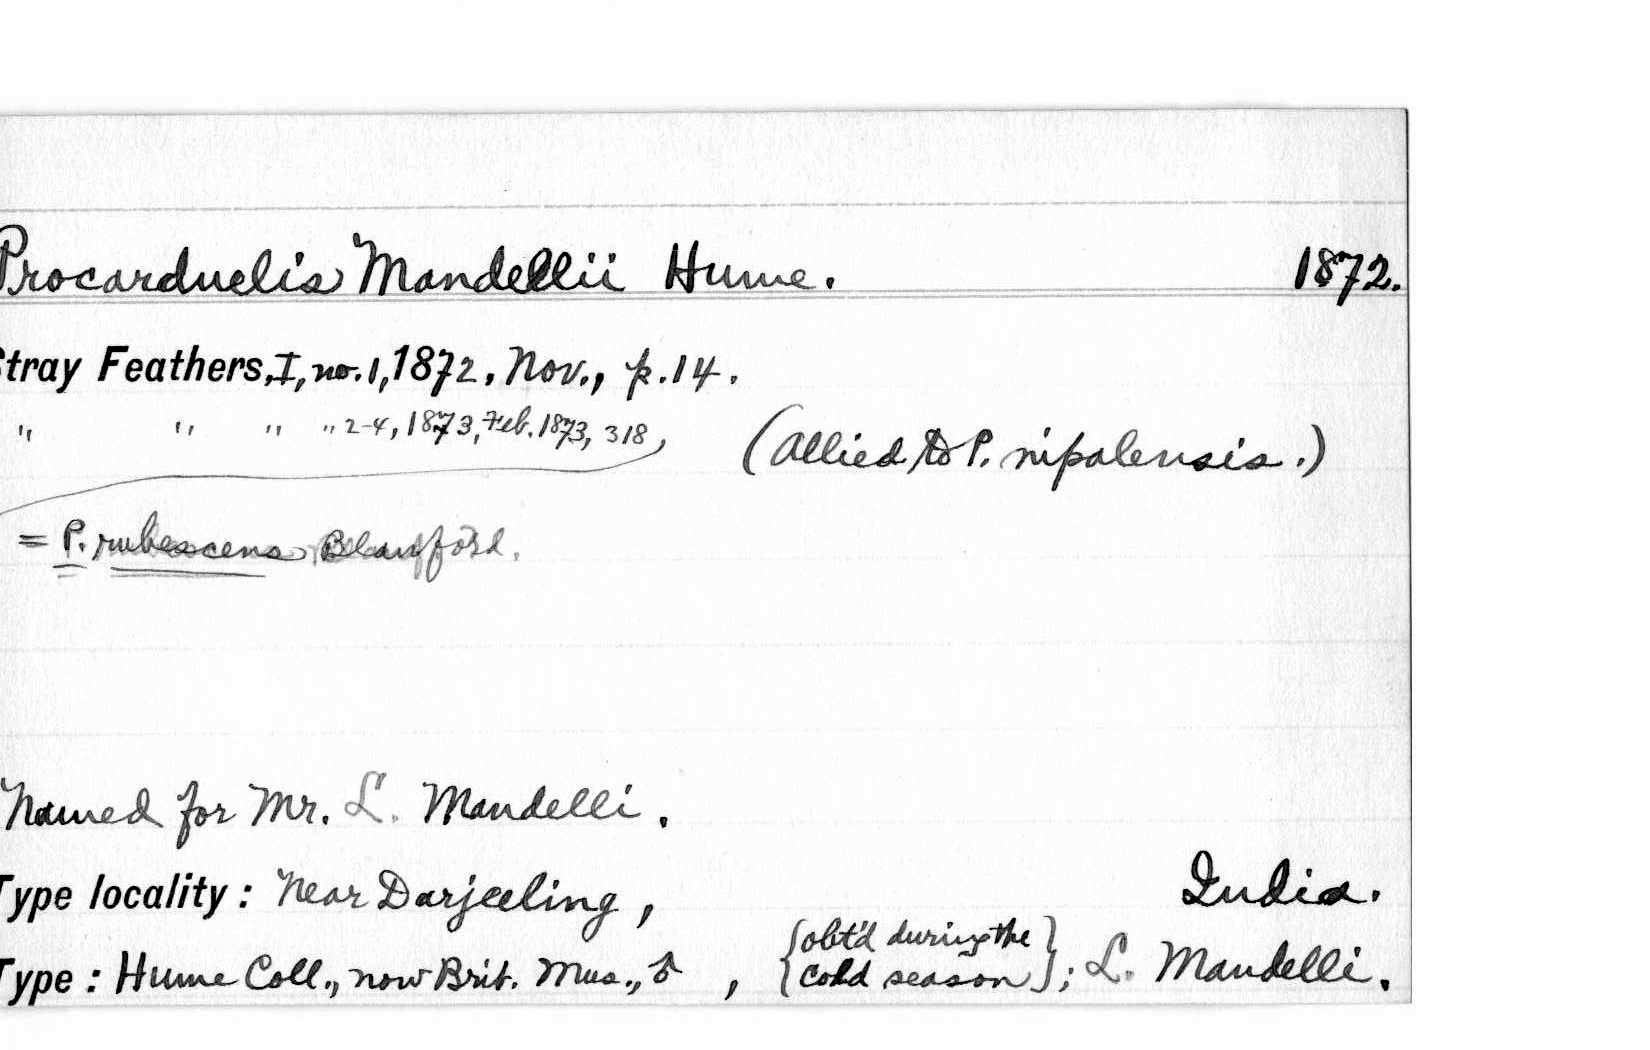 Procarduelis Mandellii Hume. 1872.
Stray Feathers, I, no. 1, 1872, Nov., p. 14.
" " " " 2-4, 1873, Feb. 1873, 318,
(Allied to P. nipalensis.)
= P. rubescens Blanford.
Named for Mr. L. Mandelli.
Type locality: Near Darjeeling, India.
Type: Hume Coll., now Brit. Mus., ♂, {obt'd during the
cold season}; L. Mandelli.